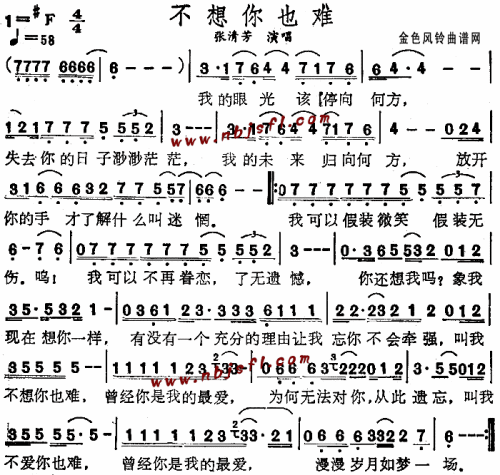 不想你也难
1=#F 4/4
♩=58
张清芳 演唱
金色风铃曲谱网
(7777 6666 | 6---) | 3·1764 47176 | 64·4-- |
我的眼光该停向何方,
121777 5 552 | 3--- | 3·1764 47176 | 4--024 |
失去你的日子渺渺茫茫, 我的未来归向何方, 放开
www.nbjsfl.com
3166 632777557 | 666-- :‖ 077777755 5557 |
你的手 才了解什么叫迷惘。 我可以假装微笑 假装无
6-76 | 077777755 552 | 3--- | 0·365532012 |
伤。呜! 我可以不再眷恋,了无遗憾, 你还想我吗?象我
35·5321- | 036123·3336111 | 22·2321 2012 |
现在想你一样, 有没有一个充分的理由让我 忘你不会牵强,叫我
3555 5-- | 1111 123233· | 066633222012 | 3·55012 |
www.nbjsfl.com
不想你也难, 曾经你是我的最爱, 为何无法对你,从此遗忘,叫我
3555 55·- | 1111 123233·21 | 066633227 | 6--- ‖
不爱你也难, 曾经你是我的最爱, 漫漫岁月如梦一场。